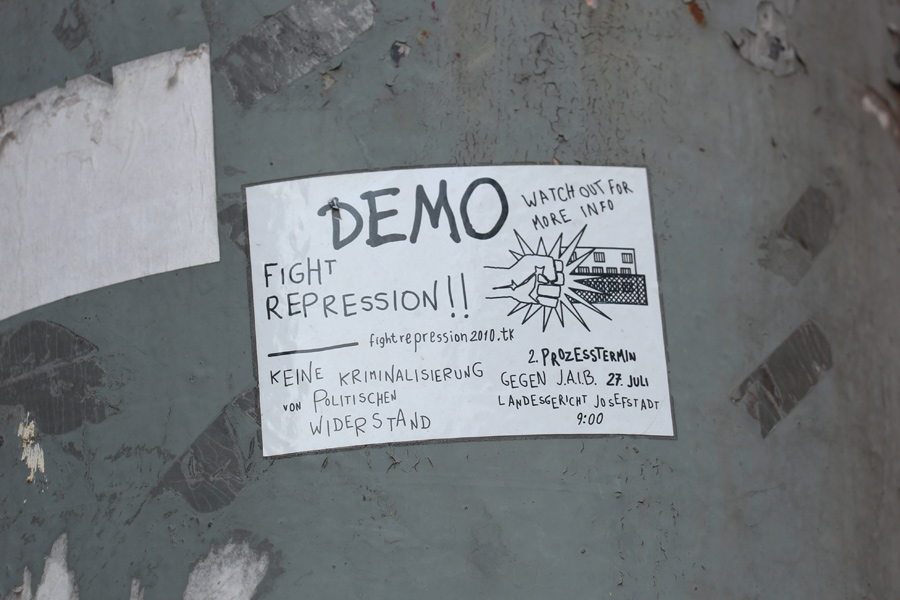 DEMO
WATCH OUT FOR
MORE INFO
FIGHT
REPRESSION!!
fightrepression2010.tk
KEINE KRIMINALISIERUNG
VON POLITISCHEN
WIDERSTAND
2. PROZESSTERMIN
GEGEN J.A.I.B. 27. JULI
LANDESGERICHT JOSEFSTADT
9:00